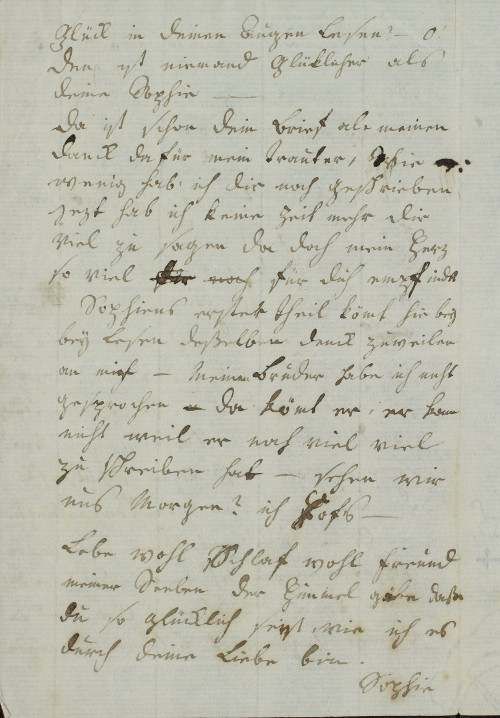 Glück in deinen Augen lesen – o
den ist niemand Glüklicher als
deine Sophie —
da ist schon dein brief alle meinen
danck dafür mein trauter, Wie
wenig hab ich dir noch geschrieben
jezt hab ich keine Zeit mehr dir
viel zu sagen da doch mein Herz
so viel für dich empfindt
Sophiens erster theil kömt hie bey
bey lesen deßelben denck zuweilen
an mich — Meinen Bruder habe ich nicht
gesprochen – da kömt er, er kan
nicht weil er noch viel viel
zu schreiben hat — sehen wir
uns Morgen? ich hofs —
Lebe wohl Schlaf wohl Freund
meiner Seelen der Himmel gebe daß
du so glücklich seyst wie ich es
durch deine Liebe bin.
Sophie